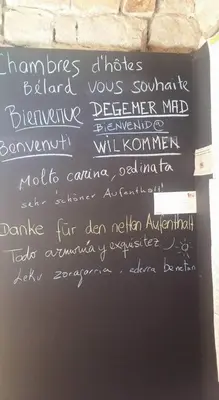 Chambres d'hôtes
Bélard vous souhaite
Bienvenue DEGEMER MAD
BiENVENID@
Benvenuti WILKOMMEN
Molto carina, ordinata
sehr schöner Aufenthalt!
Danke für den netten Aufenthalt
Todo armonía y exquisitez
Leku zoragarria, ederra benetan